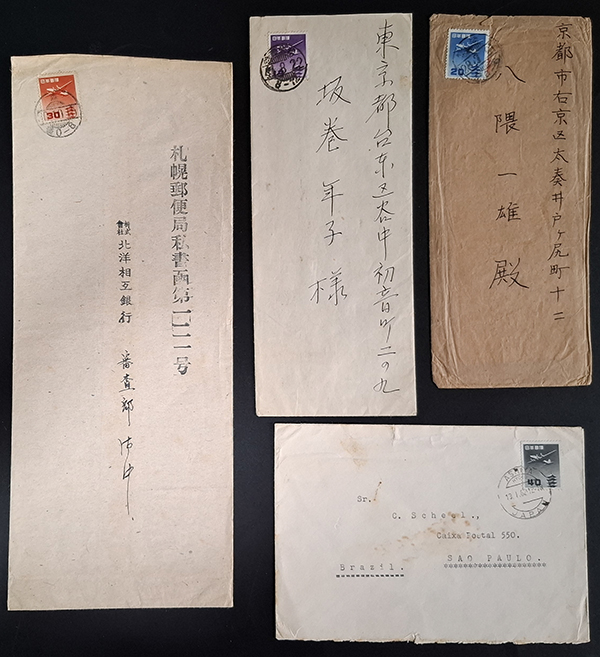 日本郵便
30
札幌郵便局私書函第一二一号
株式会社 北洋相互銀行 審査部 御中
日本郵便
22
東京都台東区谷中初音町二の九
坂巻年子様
日本郵便
20
京都市右京区太秦井戸ヶ尻町十二
八隈一雄殿
日本郵便
40
JAPAN
Sr.
C. Scheel.,
Caixa Postal 550.
SAO PAULO.
Brazil.